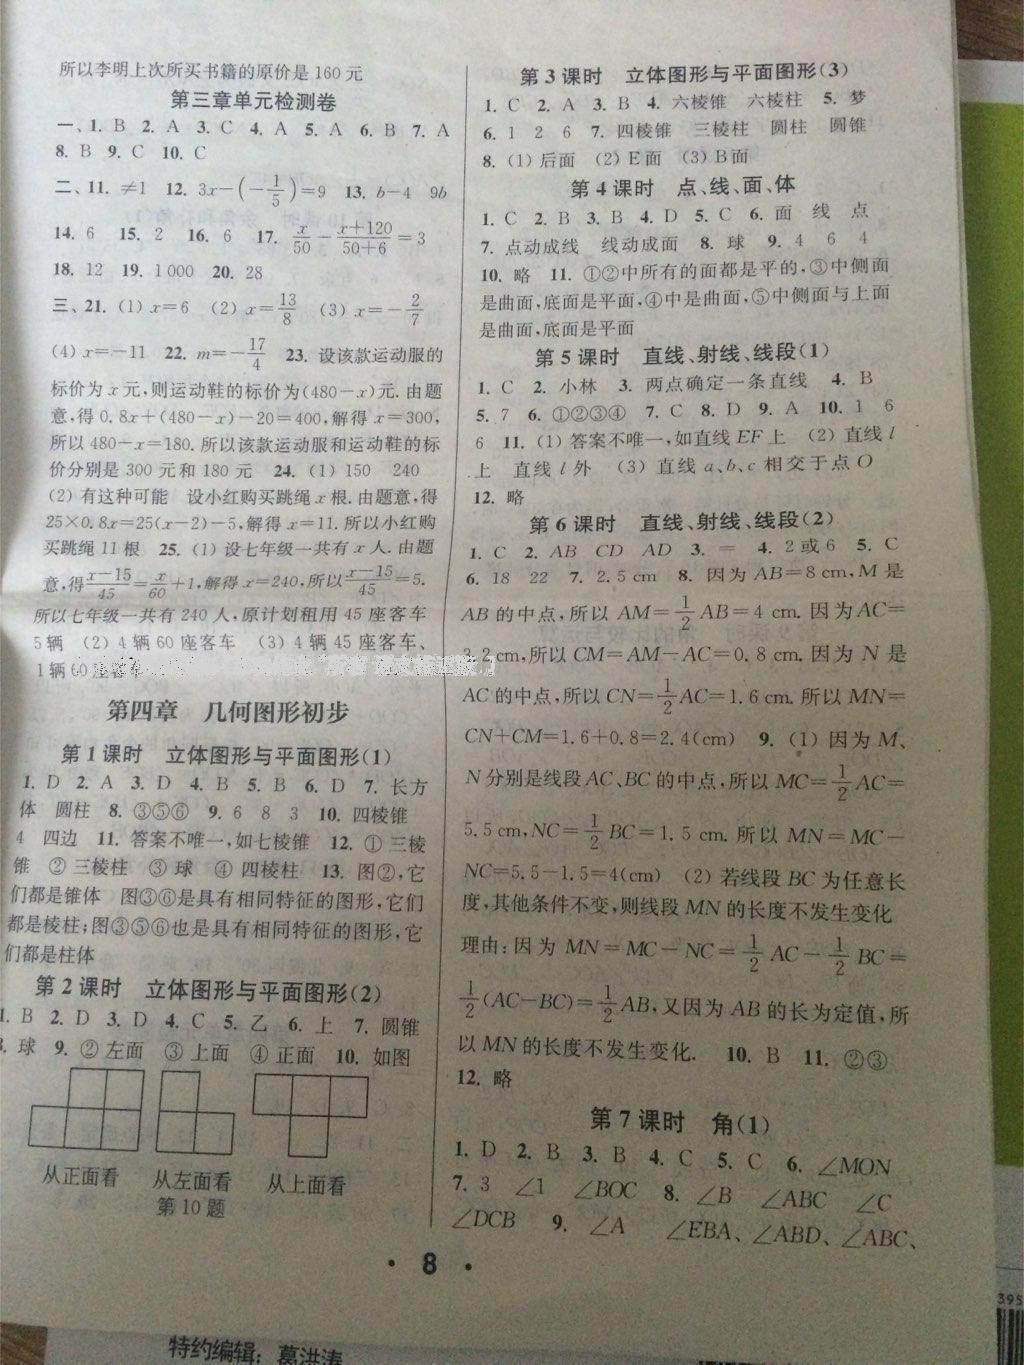 所以李明上次所买书籍的原价是 160 元
第三章单元检测卷
一、1. B 2. A 3. C 4. A 5. A 6. B 7. A
8. B 9. C 10. C
二、11. ≠1 12. 3x－(－1/5)＝9 13. b－4 9b
14. 6 15. 2 16. 6 17. x/50－(x＋120)/(50＋6)＝3
18. 12 19. 1 000 20. 28
三、21. (1) x＝6 (2) x＝13/8 (3) x＝－2/7
(4) x＝－11 22. m＝－17/4 23. 设该款运动服的
标价为 x 元,则运动鞋的标价为(480－x)元. 由题
意,得 0. 8x＋(480－x)－20＝400,解得 x＝300,
所以 480－x＝180. 所以该款运动服和运动鞋的标
价分别是 300 元和 180 元 24. (1) 150 240
(2) 有这种可能 设小红购买跳绳 x 根. 由题意,得
25×0. 8x＝25(x－2)－5,解得 x＝11. 所以小红购
买跳绳 11 根 25. (1) 设七年级一共有 x 人. 由题
意,得(x－15)/45＝x/60＋1,解得 x＝240,所以(x－15)/45＝5.
所以七年级一共有 240 人,原计划租用 45 座客车
5 辆 (2) 4 辆 60 座客车 (3) 4 辆 45 座客车、
1 辆 60 座客车
第四章 几何图形初步
第 1 课时 立体图形与平面图形(1)
1. D 2. A 3. D 4. B 5. B 6. D 7. 长方
体 圆柱 8. ③⑤⑥ 9. 6 8 3 10. 四棱锥
4 四边 11. 答案不唯一,如七棱锥 12. ① 三棱
锥 ② 三棱柱 ③ 球 ④ 四棱柱 13. 图②,它
们都是锥体 图③⑥是具有相同特征的图形,它们
都是棱柱;图③⑤⑥也是具有相同特征的图形,它
们都是柱体
第 2 课时 立体图形与平面图形(2)
1. B 2. D 3. D 4. C 5. 乙 6. 上 7. 圆锥
8. 球 9. ② 左面 ③ 上面 ④ 正面 10. 如图
从正面看 从左面看 从上面看
第 10 题
第 3 课时 立体图形与平面图形(3)
1. C 2. A 3. B 4. 六棱锥 六棱柱 5. 梦
6. 1 2 6 7. 四棱锥 三棱柱 圆柱 圆锥
8. (1) 后面 (2) E 面 (3) B 面
第 4 课时 点、线、面、体
1. C 2. B 3. B 4. D 5. C 6. 面 线 点
7. 点动成线 线动成面 8. 球 9. 4 6 4
10. 略 11. ①②中所有的面都是平的,③中侧面
是曲面,底面是平面,④中是曲面,⑤中侧面与上面
是曲面,底面是平面
第 5 课时 直线、射线、线段(1)
1. C 2. 小林 3. 两点确定一条直线 4. B
5. 7 6. ①②③④ 7. C 8. D 9. A 10. 1 6
6 11. (1) 答案不唯一,如直线 EF 上 (2) 直线 l
上 直线 l 外 (3) 直线 a、b、c 相交于点 O
12. 略
第 6 课时 直线、射线、线段(2)
1. C 2. AB CD AD 3. ＝ 4. 2 或 6 5. C
6. 18 22 7. 2. 5 cm 8. 因为 AB＝8 cm,M 是
AB 的中点,所以 AM＝1/2 AB＝4 cm. 因为 AC＝
3. 2 cm,所以 CM＝AM－AC＝0. 8 cm. 因为 N 是
AC 的中点,所以 CN＝1/2 AC＝1. 6 cm. 所以 MN＝
CN＋CM＝1. 6＋0. 8＝2. 4(cm) 9. (1) 因为 M、
N 分别是线段 AC、BC 的中点,所以 MC＝1/2 AC＝
5. 5 cm,NC＝1/2 BC＝1. 5 cm. 所以 MN＝MC－
NC＝5. 5－1. 5＝4(cm) (2) 若线段 BC 为任意长
度,其他条件不变,则线段 MN 的长度不发生变化
理由:因为 MN＝MC－NC＝1/2 AC－1/2 BC＝
1/2(AC－BC)＝1/2 AB,又因为 AB 的长为定值,所
以 MN 的长度不发生变化. 10. B 11. ②③
12. 略
第 7 课时 角(1)
1. D 2. B 3. B 4. C 5. C 6. ∠MON
7. 3 ∠1 ∠BOC 8. ∠B ∠ABC ∠C
∠DCB 9. ∠A ∠EBA、∠ABD、∠ABC、
· 8 ·
特约编辑：葛洪涛
395